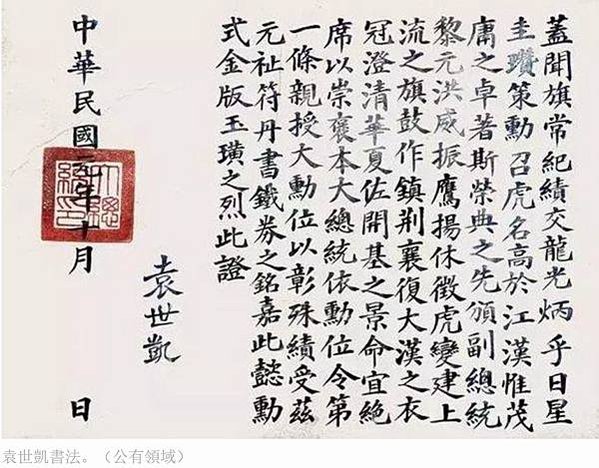 蓋聞旗常紀績交龍光炳乎日星
圭瓚策勳召虎名高於江漢惟茂
庸之卓著斯榮典之先頒副總統
黎元洪威振鷹揚休徵虎變建上
流之旗鼓作鎮荆襄復大漢之衣
冠澄清華夏佐開基之景命宜絶
席以崇褒本大總統依勳位令第
一條親授大勳位以彰殊績受茲
元祉符丹書鐵券之銘嘉此懿勳
式金版玉璜之烈此證
袁世凱
中華民國年十月 日
袁世凱書法。（公有領域）